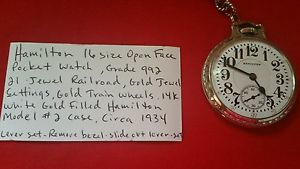 Hamilton 16 Size Open Face
Pocket Watch, Grade 992
21 Jewel Railroad, Gold Jewel
Settings, Gold Train Wheels. 14K
White Gold Filled Hamilton
Model #2 Case, Circa 1934
Lever set-Remove bezel-slide out lever-set
HAMILTON